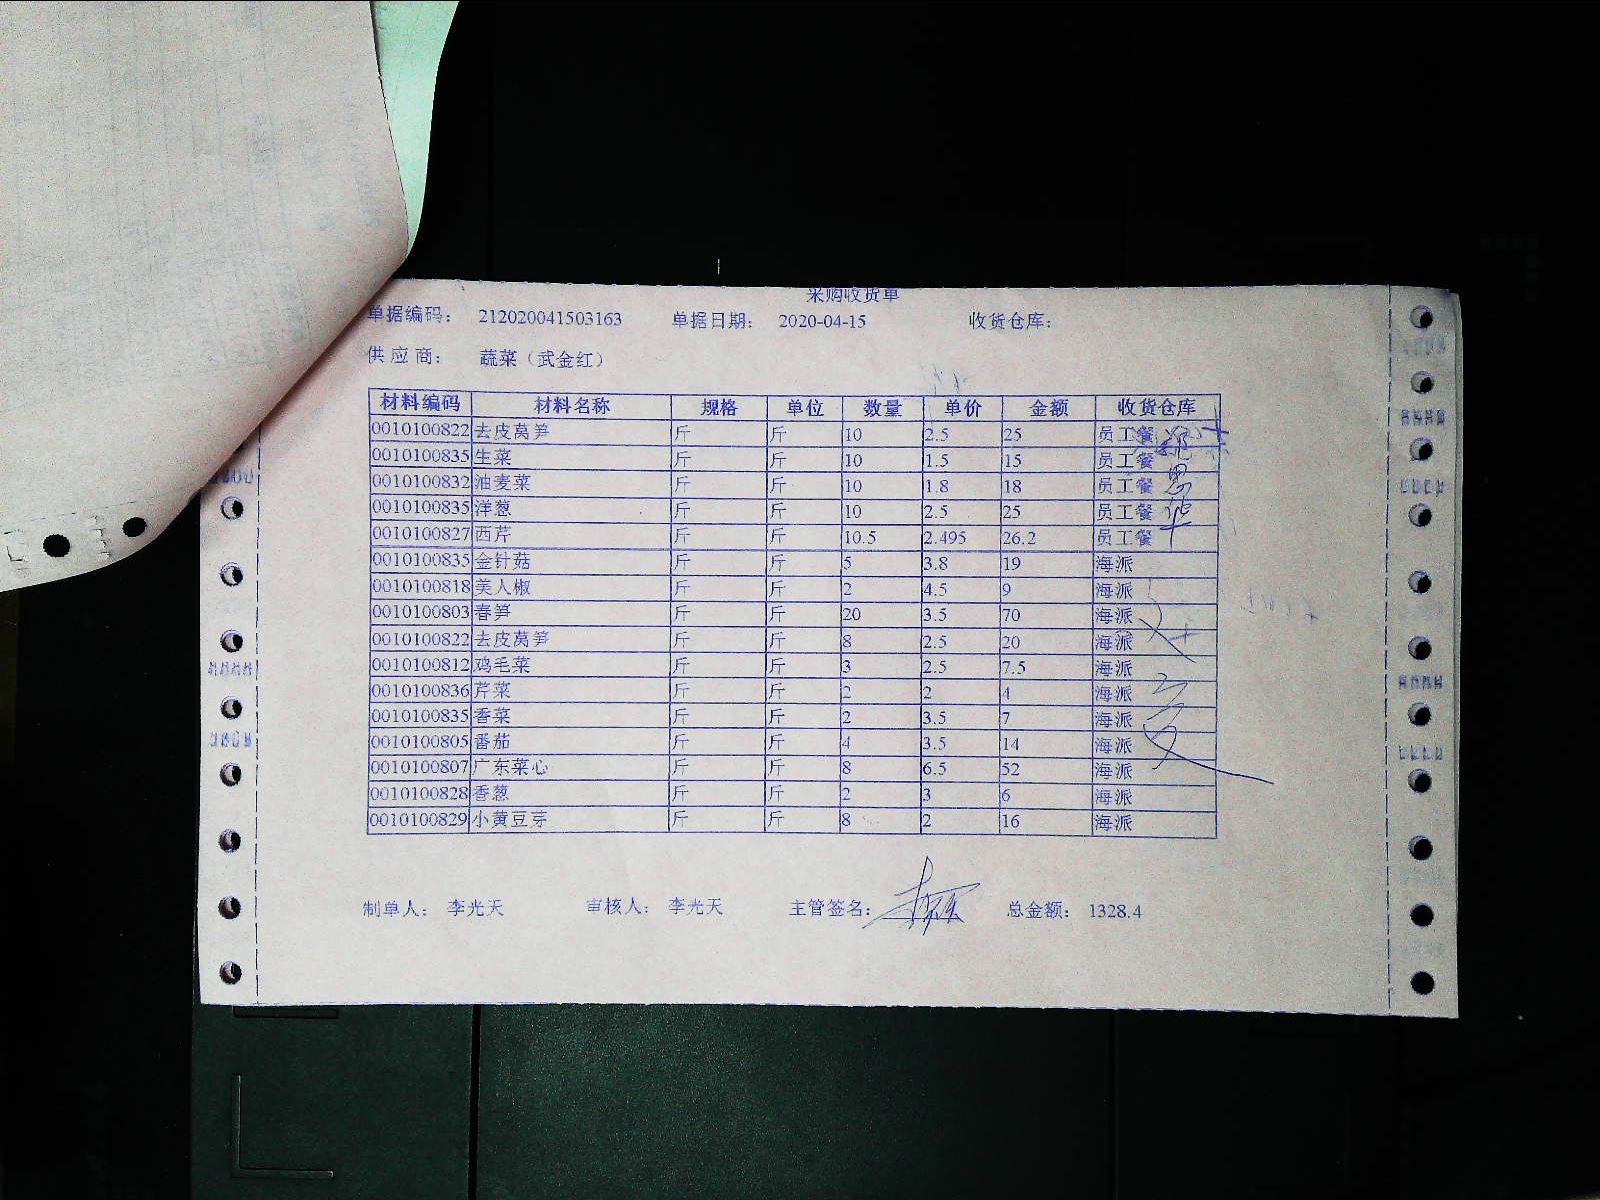 采购收货单
单据编码： 212020041503163 单据日期： 2020-04-15 收货仓库：
供应商： 蔬菜（武金红）
材料编码 材料名称 规格 单位 数量 单价 金额 收货仓库
0010100822 去皮莴笋 斤 斤 10 2.5 25 员工餐
0010100835 生菜 斤 斤 10 1.5 15 员工餐
0010100832 油麦菜 斤 斤 10 1.8 18 员工餐
0010100835 洋葱 斤 斤 10 2.5 25 员工餐
0010100827 西芹 斤 斤 10.5 2.495 26.2 员工餐
0010100835 金针菇 斤 斤 5 3.8 19 海派
0010100818 美人椒 斤 斤 2 4.5 9 海派
0010100803 春笋 斤 斤 20 3.5 70 海派
0010100822 去皮莴笋 斤 斤 8 2.5 20 海派
0010100812 鸡毛菜 斤 斤 3 2.5 7.5 海派
0010100836 芹菜 斤 斤 2 2 4 海派
0010100835 香菜 斤 斤 2 3.5 7 海派
0010100805 番茄 斤 斤 4 3.5 14 海派
0010100807 广东菜心 斤 斤 8 6.5 52 海派
0010100828 香葱 斤 斤 2 3 6 海派
0010100829 小黄豆芽 斤 斤 8 2 16 海派
制单人： 李光天 审核人： 李光天 主管签名： 总金额： 1328.4